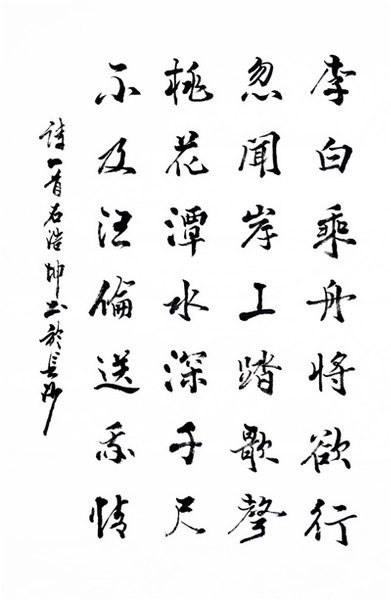 李白乘舟將欲行
忽聞岸上踏歌聲
桃花潭水深千尺
不及汪倫送我情
詩一首石浩坤书於長沙